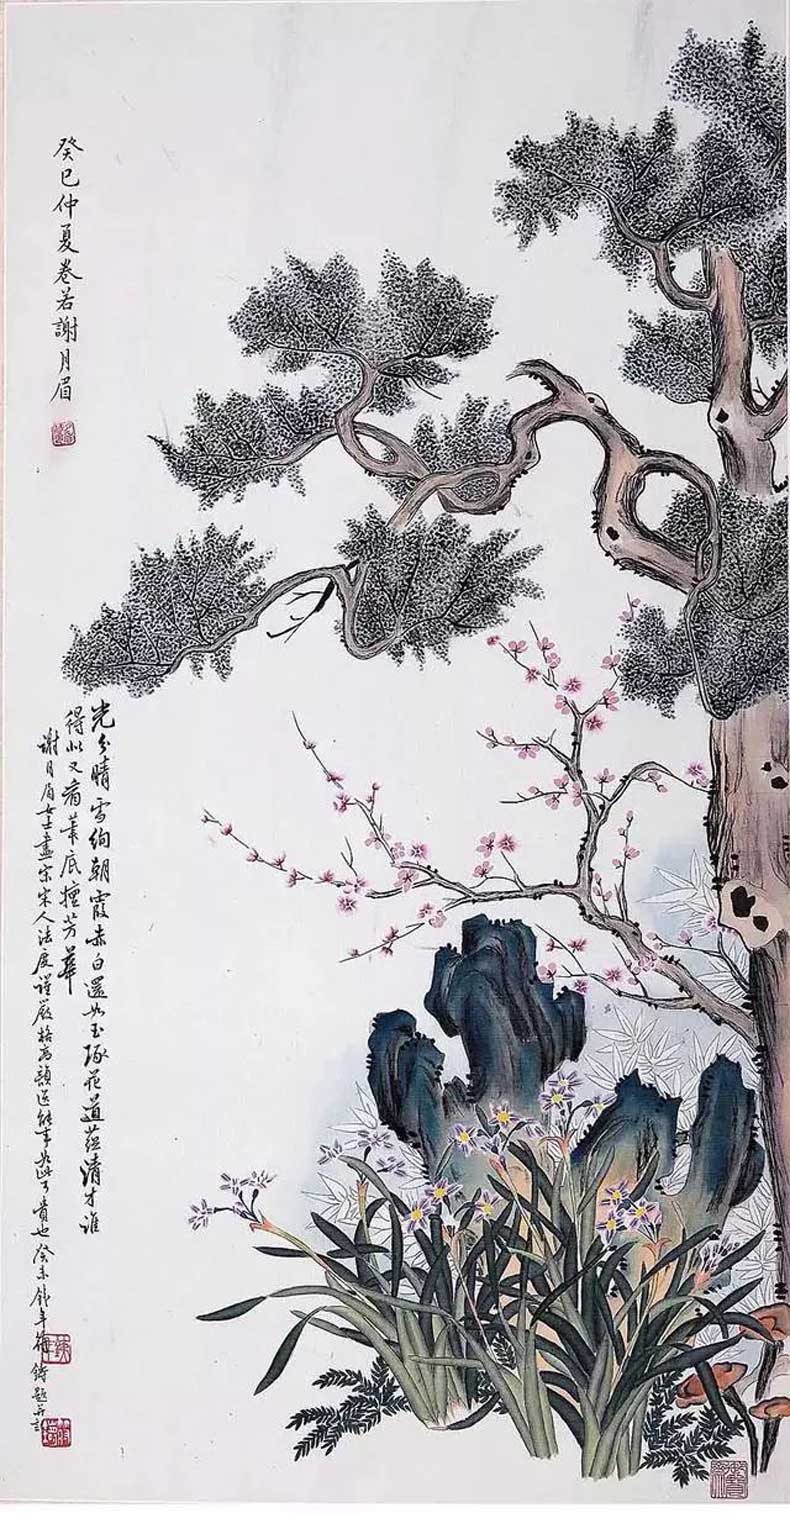 癸巳仲夏卷若謝月眉
光分晴雪絢朝霞赤白還如玉琢花道蘊清才誰
得似又看筆底擅芳華
謝月眉女士畫宗宋人法度謹嚴格高韻遠能事如此可貴也癸未鑄題并記